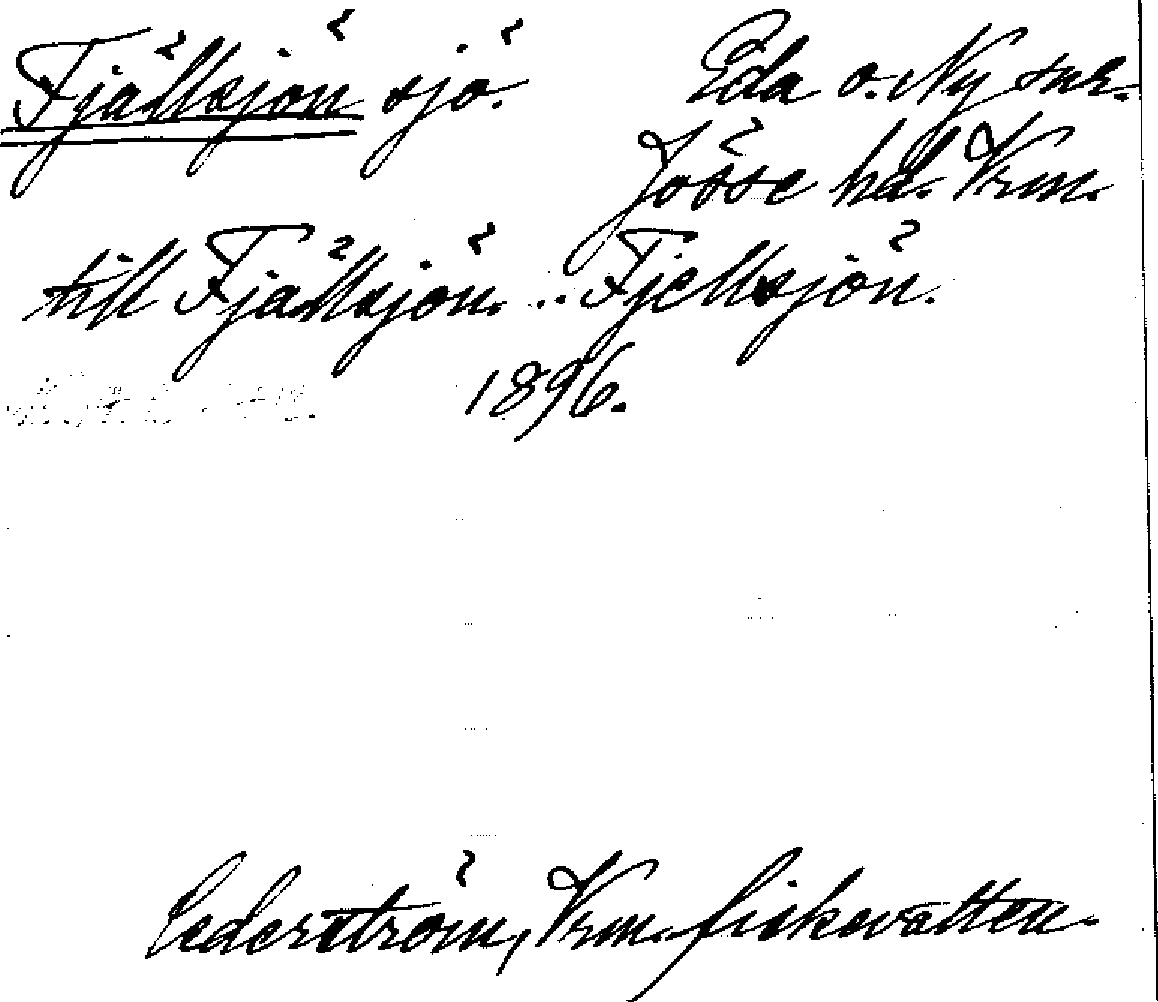 Fjällsjön sjö. Eda o. Ny snr.
Jösse hd. Vrm.
till Fjällsjön. .. Fjellsjön.
1896.
Cederström, Vrm. fiskevatten.